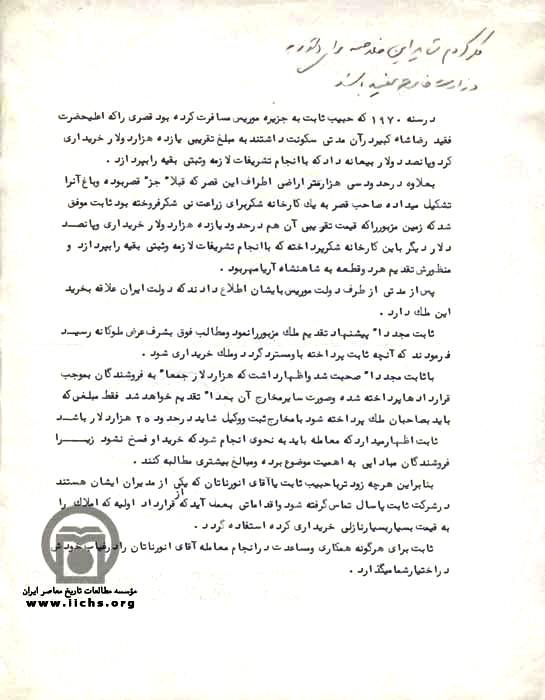 فکر کردم شاید این خلاصه برای
وزارت خارجه مفید باشد
درسنه ۱۹۷۰ که حبیب ثابت به جزیره موریس مسافرت کرده بود قصری راکه اعلیحضرت
فقید رضاشاه کبیر درآن مدتی سکونت داشتند به مبلغ تقریبی یازده هزارد ولار خریداری
کرد وپانصد دولار بیعانه داد که باانجام تشریفات لازمه وثبتی بقیه رابپردازد .
بعلاوه درحدود سی هزارمتر اراضی اطراف این قصر که قبلا" جز" قصربوده وباغ آنرا
تشکیل میداده صاحب قصر به یك کارخانه شکربرای زراعت نی شکرفروخته بود ثابت موفق
شد که زمین مزبورراکه قیمت تقریبی آن هم درحدود یازده هزارد ولار خریداری وپانصد
دلار دیگر باین کارخانه شکرپرداخته که باانجام تشریفات لازمه وثبتی بقیه رابپردازد و
منظورش تقدیم هردوقطعه به شاهنشاه آریامهربود .
پس از مدتی از طرف دولت موریس بایشان اطلاع دادند که دولت ایران علاقه بخرید
این ملك دارد .
ثابت مجددا" پیشنهاد تقدیم ملك مزبوررانمود ومطالب فوق بشرف عرض ملوکانه رسید
فرمودند که آنچه ثابت پرداخته باومسترد گردد وملك خریداری شود .
باثابت مجددا" صحبت شد واظهارداشت که هزارد لار جمعا" به فروشندگان بموجب
قرارداد هاپرداخته شده وصورت سایرمخارج آن بعدا" تقدیم خواهد شد فقط مبلغی که
باید بصاحبان ملك پرداخته شود بامخارج ثبت ووکیل شاید درحدود ۲۵ هزارد لار باشد
ثابت اظهارمیدارد که معامله باید به نحوی انجام شود که خرید او فسخ نشود زیرا
فروشندگان مبادا پی به اهمیت موضوع برده ومبالغ بیشتری مطالبه کنند .
بنابراین هرچه زود ترباحبیب ثابت یاآقای انورتاتان که یکی از مدیران ایشان هستند
درشرکت ثابت پاسال تماس گرفته شود واقداماتی بعمل آید که از قرارداد اولیه که املاك را
به قیمت بسیاربسیارنازلی خریداری کرده استفاده گردد .
ثابت برای هرگونه همکاری ومساعدت درانجام معامله آقای انورتاتان رادرغیاب خودش
دراختیارشمامیگذارد .
مؤسسه مطالعات تاریخ معاصر ایران
www.iichs.org